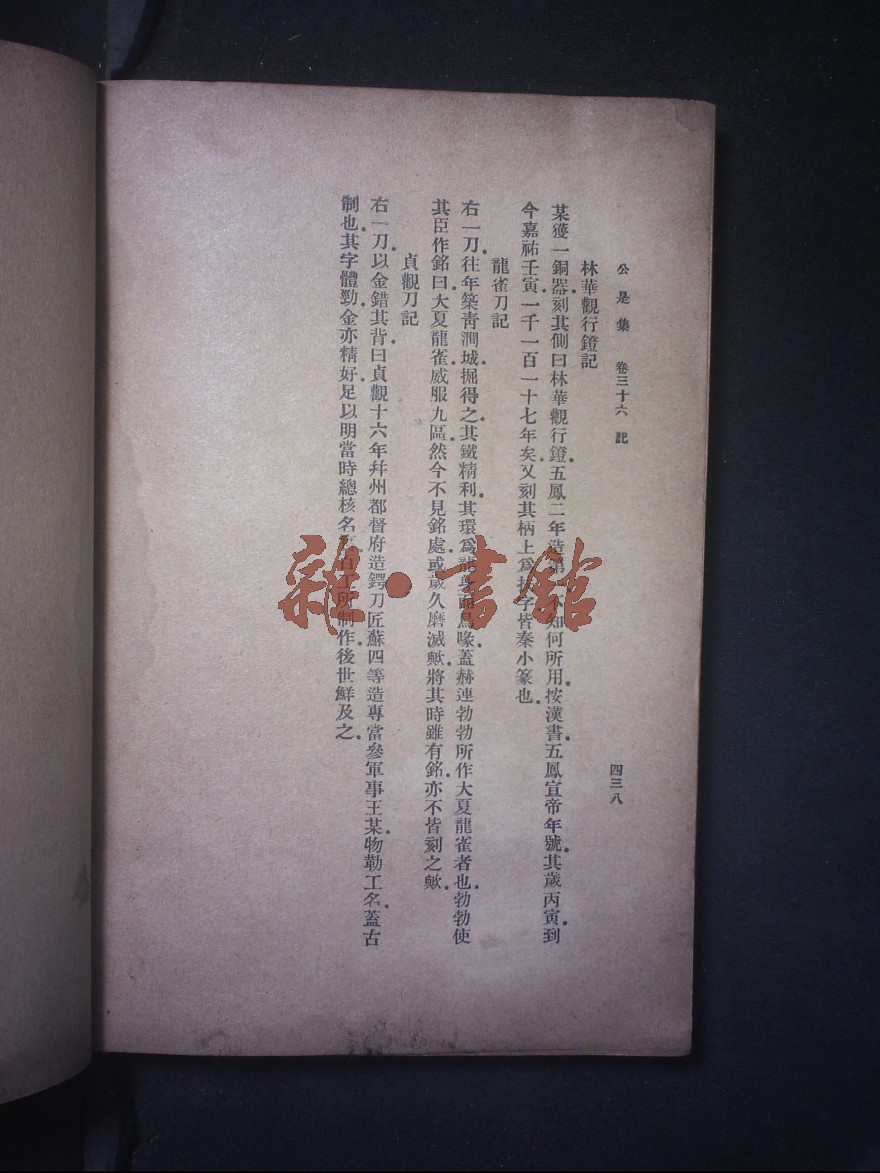 公是集　卷三十六　記　四三八
林華觀行鐙記
某獲一銅器。刻其側曰林華觀行鐙。五鳳二年造第一。不知何所用。按漢書。五鳳宣帝年號。其歲丙寅。到
今嘉祐壬寅。一千一百一十七年矣。又刻其柄上爲扶字。皆秦小篆也。
龍雀刀記
右一刀。往年築靑澗城。掘得之。其鐵精利。其環爲龍身而鳥喙。蓋赫連勃勃所作大夏龍雀者也。勃勃使
其臣作銘曰。大夏龍雀。威服九區。然今不見銘處。或歲久磨滅歟。將其時雖有銘。亦不皆刻之歟。
貞觀刀記
右一刀。以金錯其背。曰貞觀十六年幷州都督府造鍔刀匠蘇四等造專當參軍事王某。物勒工名。蓋古
制也。其字體勁。金亦精好。足以明當時總核名 百工所制作。後世鮮及之。
雜·書館